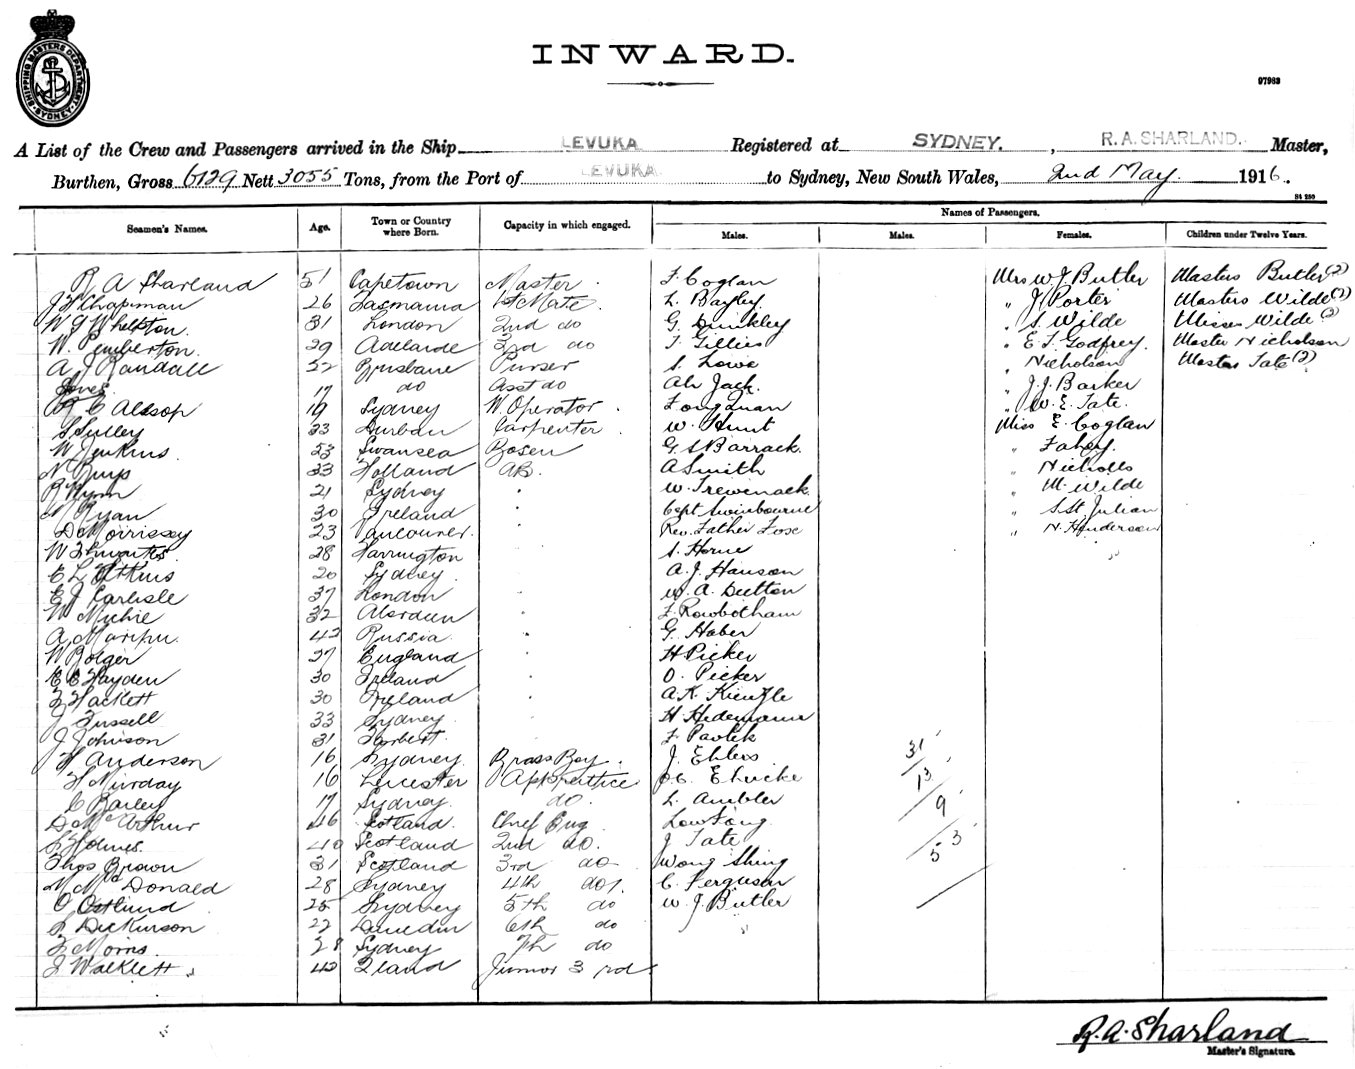 SHIPPING MASTERS DEPARTMENT SYDNEY
INWARD.
97983
A List of the Crew and Passengers arrived in the Ship LEVUKA Registered at SYDNEY. , R. A. SHARLAND. Master,
Burthen, Gross 6129 Nett 3055 Tons, from the Port of LEVUKA. to Sydney, New South Wales, 2nd May. 1916.
St 250
Names of Passengers.
Seamen's Names. Age. Town or Country where Born. Capacity in which engaged. Males. Males. Females. Children under Twelve Years.
R A Sharland 51 Capetown Master. F. Coglan Mrs W. J. Butler Masters Butler (2)
J F Chapman 26 Tasmania 1st Mate. L. Bayley " J. Porter Masters Wilde (2)
W G Whelpton. 31 London 2nd do G. Dunkley " S. Wilde Misses Wilde (2)
W. Pemberton. 29 Adelaide 3rd do T. Gillies " E. T. Godfrey. Master Nicholson
A J Randall 52 Brisbane Purser S. Lowe " Nicholson Masters Tate (2)
Jones 17 do Asst do Ah Jack. " J. J. Barker
C Allsop 19 Sydney W. Operator. Fong Quan " W. E. Tate.
S Sulley 33 Durban Carpenter. W. Hunt Miss E. Coglan
W Jenkins. 53 Swansea Bosen G. S Barrack. " Fahey.
N 33 Holland AB. A Smith " Nicholls
R Wynn 21 Sydney " W. Trewenack. " M. Wilde
Ryan 30 Ireland " Capt Swinbourne " S St Julian
D Morrissey 23 Vancouver. " Rev. Father Fox " N. Henderson
W 28 Harrington " S. Horne
E L Atkins 20 Sydney. " A. J. Hanson
E J Carlisle 37 London " W. A. Dutton
W Michie 32 Aberdeen " F. Rowbotham
A. 42 Russia " G. Haber
W Bolger 27 England " H Picker
E C Hayden 30 Ireland " O. Picker
F Hackett 30 Ireland " A. K. Kienzle
J Fussell 33 Sydney. " H Hedemann
J Johnson 31 " F Pavlek
H Anderson 16 Sydney. Brass Boy. J. Ehlers 31
H Murday 16 Leicester Apprentice 13
C Bailey 17 Sydney. do. L. Ambler 9
D McArthur 46 Scotland. Chief Eng Low Fong 53
Holmes. 40 Scotland 2nd do. J. Tate
Thos Brown 31 Scotland 3rd do Wong Shing
McDonald 28 Sydney 4th do. C. Ferguson
O Ostlund 25 Sydney 5th do W. J. Butler
S Dickinson 22 Dunedin 6th do
F Morris. 28 Sydney 7th do
J Walklett 42 Qland Junior 3rd
R. A. Sharland
Master's Signature.